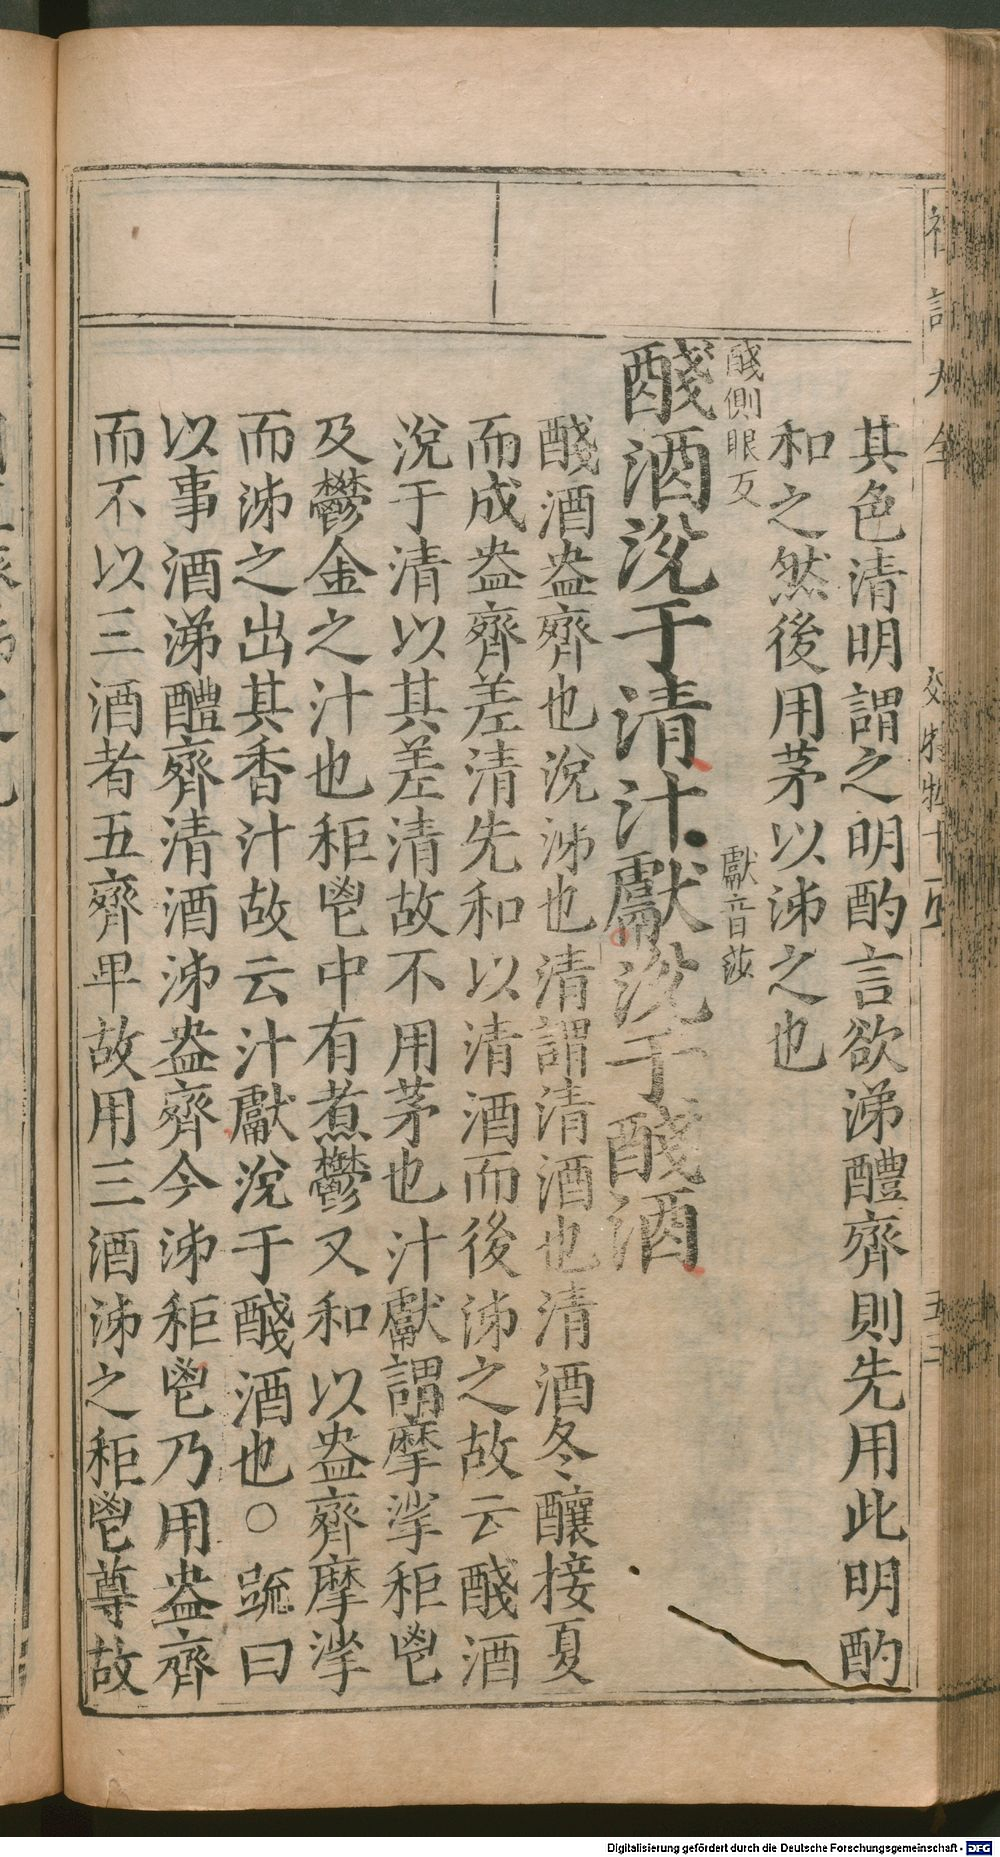 其色清明謂之明酌言欲涕醴齊則先用此明酌
和之然後用茅以涕之也
醆側眼反
獻音莎
醆酒涗于清汁獻涗于醆酒
醆酒盎齊也涗涕也清謂清酒也清酒冬釀接夏
而成盎齊差清先和以清酒而後涕之故云醆酒
涗于清以其差清故不用茅也汁獻謂摩挲秬鬯
及鬱金之汁也秬鬯中有煮鬱又和以盎齊摩挲
而涕之出其香汁故云汁獻涗于醆酒也○䟽曰
以事酒涕醴齊清酒涕盎齊今涕秬鬯乃用盎齊
而不以三酒者五齊卑故用三酒涕之秬鬯尊故
Digitalisierung gefördert durch die Deutsche Forschungsgemeinschaft - DFG